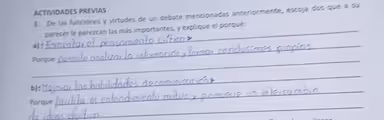 ACTIVIDADES PREVIAS
8. De las funciones y virtudes de un debate mencionadas anteriormente, escoja dos que a su
parecer le parezcan las más importantes, y explique el porqué:
a) Fomentar el pensamiento crítico
Porque permite analizar la información y formar conclusiones propias
b) Mejorar las habilidades de comunicación
Porque facilita el entendimiento mutuo y promueve un intercambio
de ideas